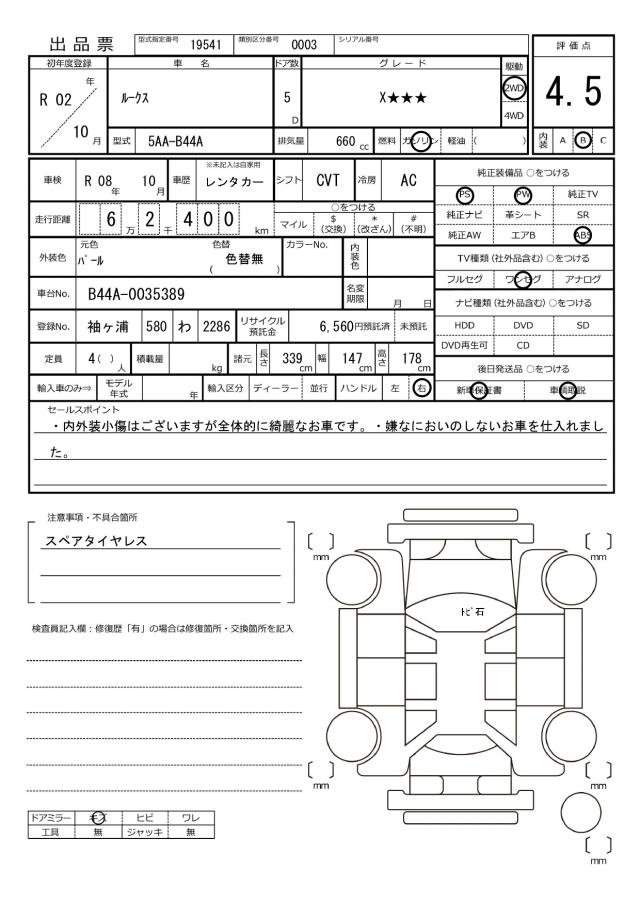 出品票
型式指定番号 19541 類別区分番号 0003 シリアル番号
評価点
4.5
内装 A B C
初年度登録 車名 ドア数 グレード 駆動
R 02 年 10 月
ルークス 5 D X★★★ 2WD 4WD
型式 5AA-B44A 排気量 660 cc 燃料 ガソリン 軽油 ( )
車検 R 08 年 10 月 車歴 ※未記入は自家用 レンタカー シフト CVT 冷房 AC
走行距離 6 万 2 千 4 0 0 km
○をつける
マイル $ (交換) * (改ざん) # (不明)
外装色 元色 パール 色替 ( 色替無 ) カラーNo. 内装色
車台No. B44A-0035389 名変期限 月 日
登録No. 袖ヶ浦 580 わ 2286 リサイクル預託金 6,560円預託済 未預託
定員 4( ) 人 積載量 kg 諸元 長さ 339 cm 幅 147 cm 高さ 178 cm
輸入車のみ⇒ モデル年式 年 輸入区分 ディーラー 並行 ハンドル 左 右
純正装備品 ○をつける
PS PW 純正TV
純正ナビ 革シート SR
純正AW エアB ABS
TV種類(社外品含む)○をつける
フルセグ ワンセグ アナログ
ナビ種類(社外品含む)○をつける
HDD DVD SD
DVD再生可 CD
後日発送品 ○をつける
新車保証書 車輌取説
セールスポイント
・内外装小傷はございますが全体的に綺麗なお車です。・嫌なにおいのしないお車を仕入れまし
た。
注意事項・不具合箇所
スペアタイヤレス
検査員記入欄：修復歴「有」の場合は修復箇所・交換箇所を記入
〔 〕mm
〔 〕mm
トビ石
〔 〕mm
〔 〕mm
〔 〕mm
ドアミラー キズ ヒビ ワレ
工具 無 ジャッキ 無